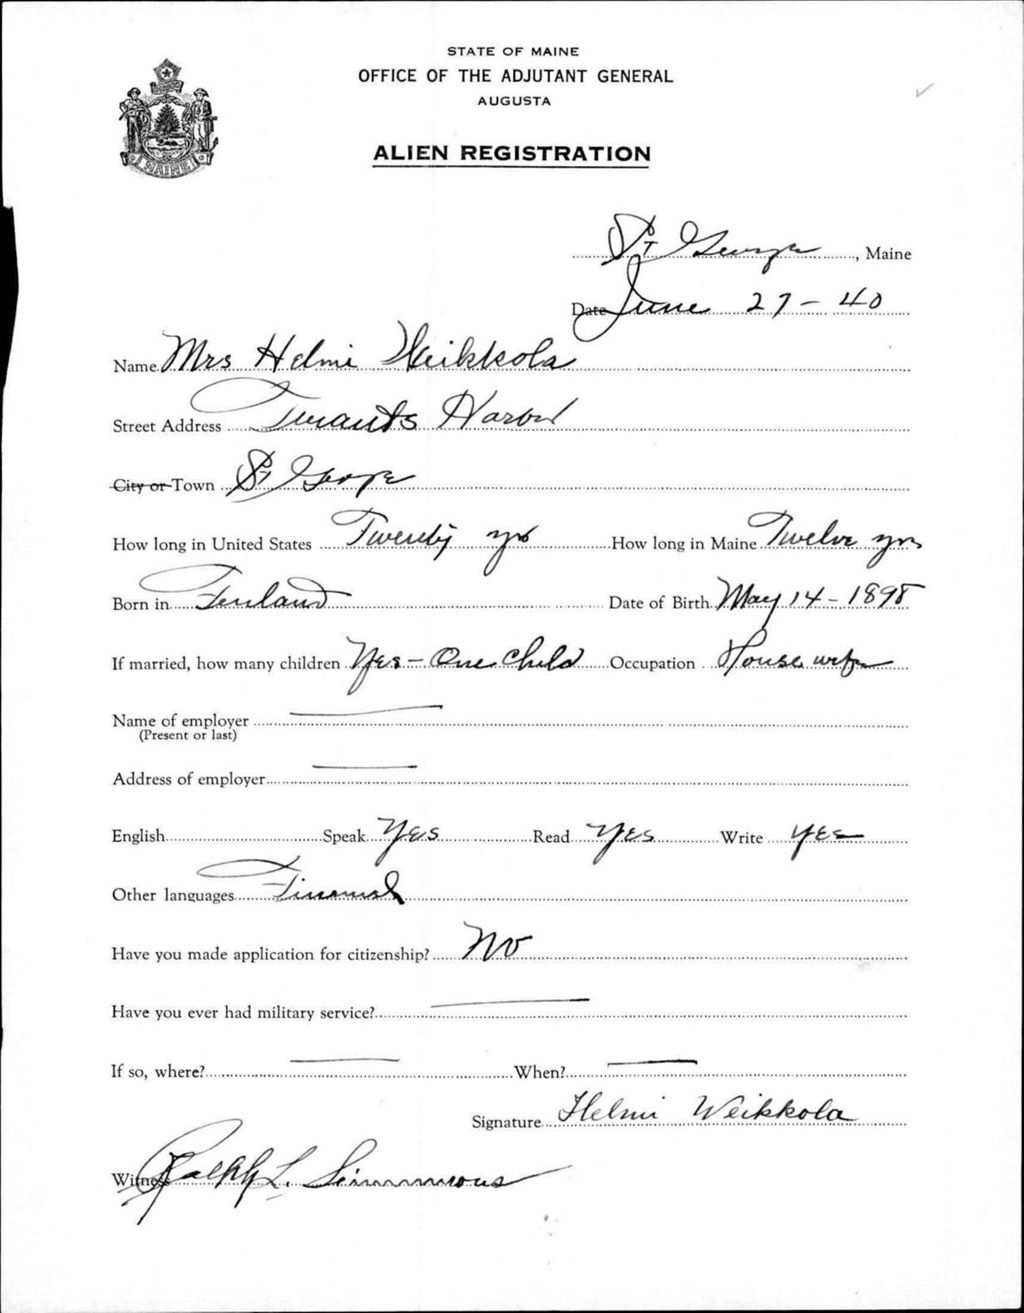 STATE OF MAINE
OFFICE OF THE ADJUTANT GENERAL
AUGUSTA
ALIEN REGISTRATION
MAINE
St George, Maine
Date June 27-40
Name Mrs Helmi Weikkola
Street Address Tenants Harbor
City or Town St George
How long in United States Twenty yrs How long in Maine Twelve yrs
Born in Finland Date of Birth May 14-1898
If married, how many children Yes - One Child Occupation House wife
Name of employer
(Present or last)
Address of employer
English Speak Yes Read Yes Write yes
Other languages Finnish
Have you made application for citizenship? No
Have you ever had military service?
If so, where? When?
Signature Helmi Weikkola
Witness Ralph L. Simmons